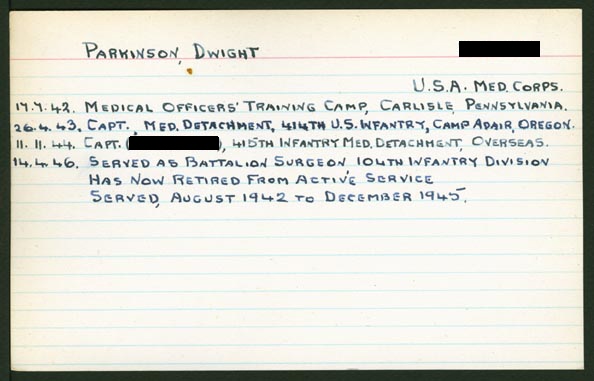 PARKINSON, DWIGHT
U.S.A. MED. CORPS.
17.7.42. MEDICAL OFFICERS' TRAINING CAMP, CARLISLE, PENNSYLVANIA.
26.4.43. CAPT., MED. DETACHMENT, 414TH U.S. INFANTRY, CAMP ADAIR, OREGON.
11.11.44. CAPT. ( ), 415TH INFANTRY MED. DETACHMENT, OVERSEAS.
14.4.46. SERVED AS BATTALION SURGEON 104TH INFANTRY DIVISION
HAS NOW RETIRED FROM ACTIVE SERVICE
SERVED, AUGUST 1942 TO DECEMBER 1945.